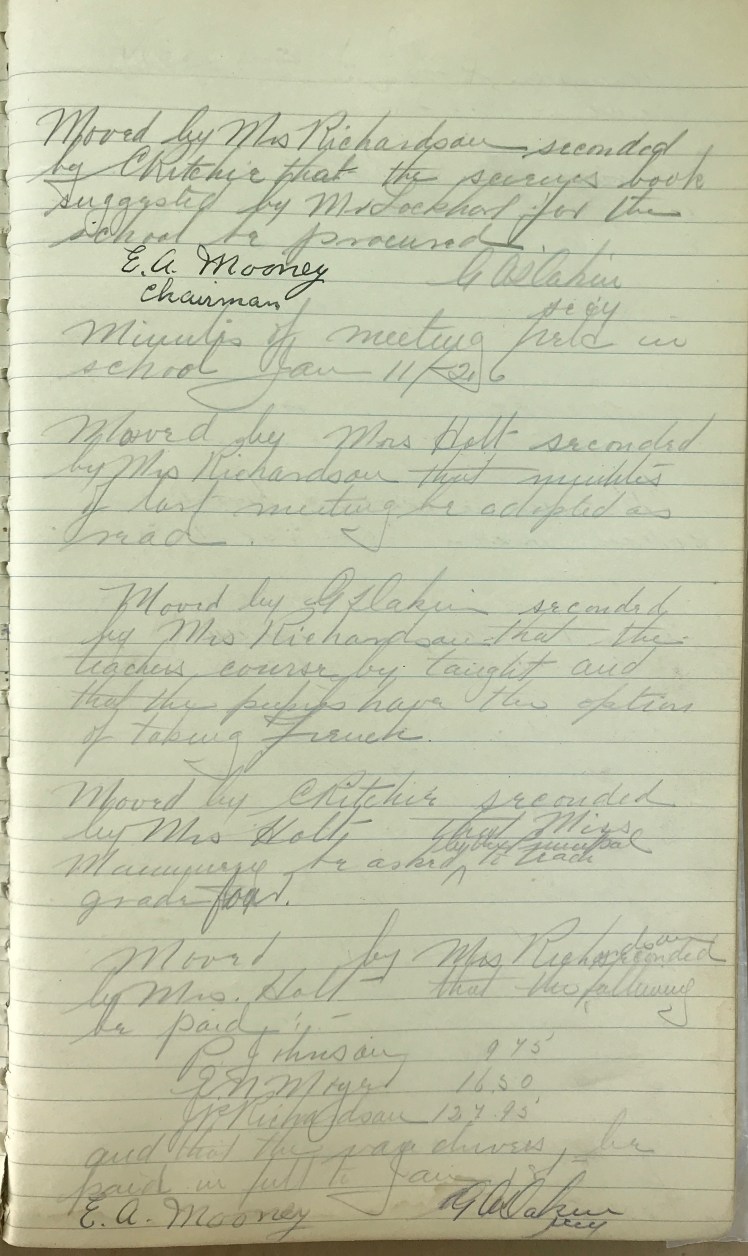 Moved by Mrs Richardson seconded
by C Ritchie that the science book
suggested by Mr Lockhart for the
school be procured
E.A. Mooney
chairman
secy
Minutes of meeting held in
school Jan 11/26
Moved by Mrs Holt seconded
by Mrs Richardson that minutes
of last meeting be adopted as
read.
Moved by G Dakin seconded
by Mrs Richardson that the
teachers course by taught and
that the pupils have the option
of taking French.
Moved by C Ritchie seconded
by Mrs Holt that Miss
by the principal
be asked ^ to teach
grade four.
Moved by Mrs Richardson seconded
by Mrs. Holt that the following
be paid :-
P Johnson 9 75
Moyer 16.50
Richardson 127.95
and that the van drivers be
paid in full to Jan
E. A. Mooney
secy